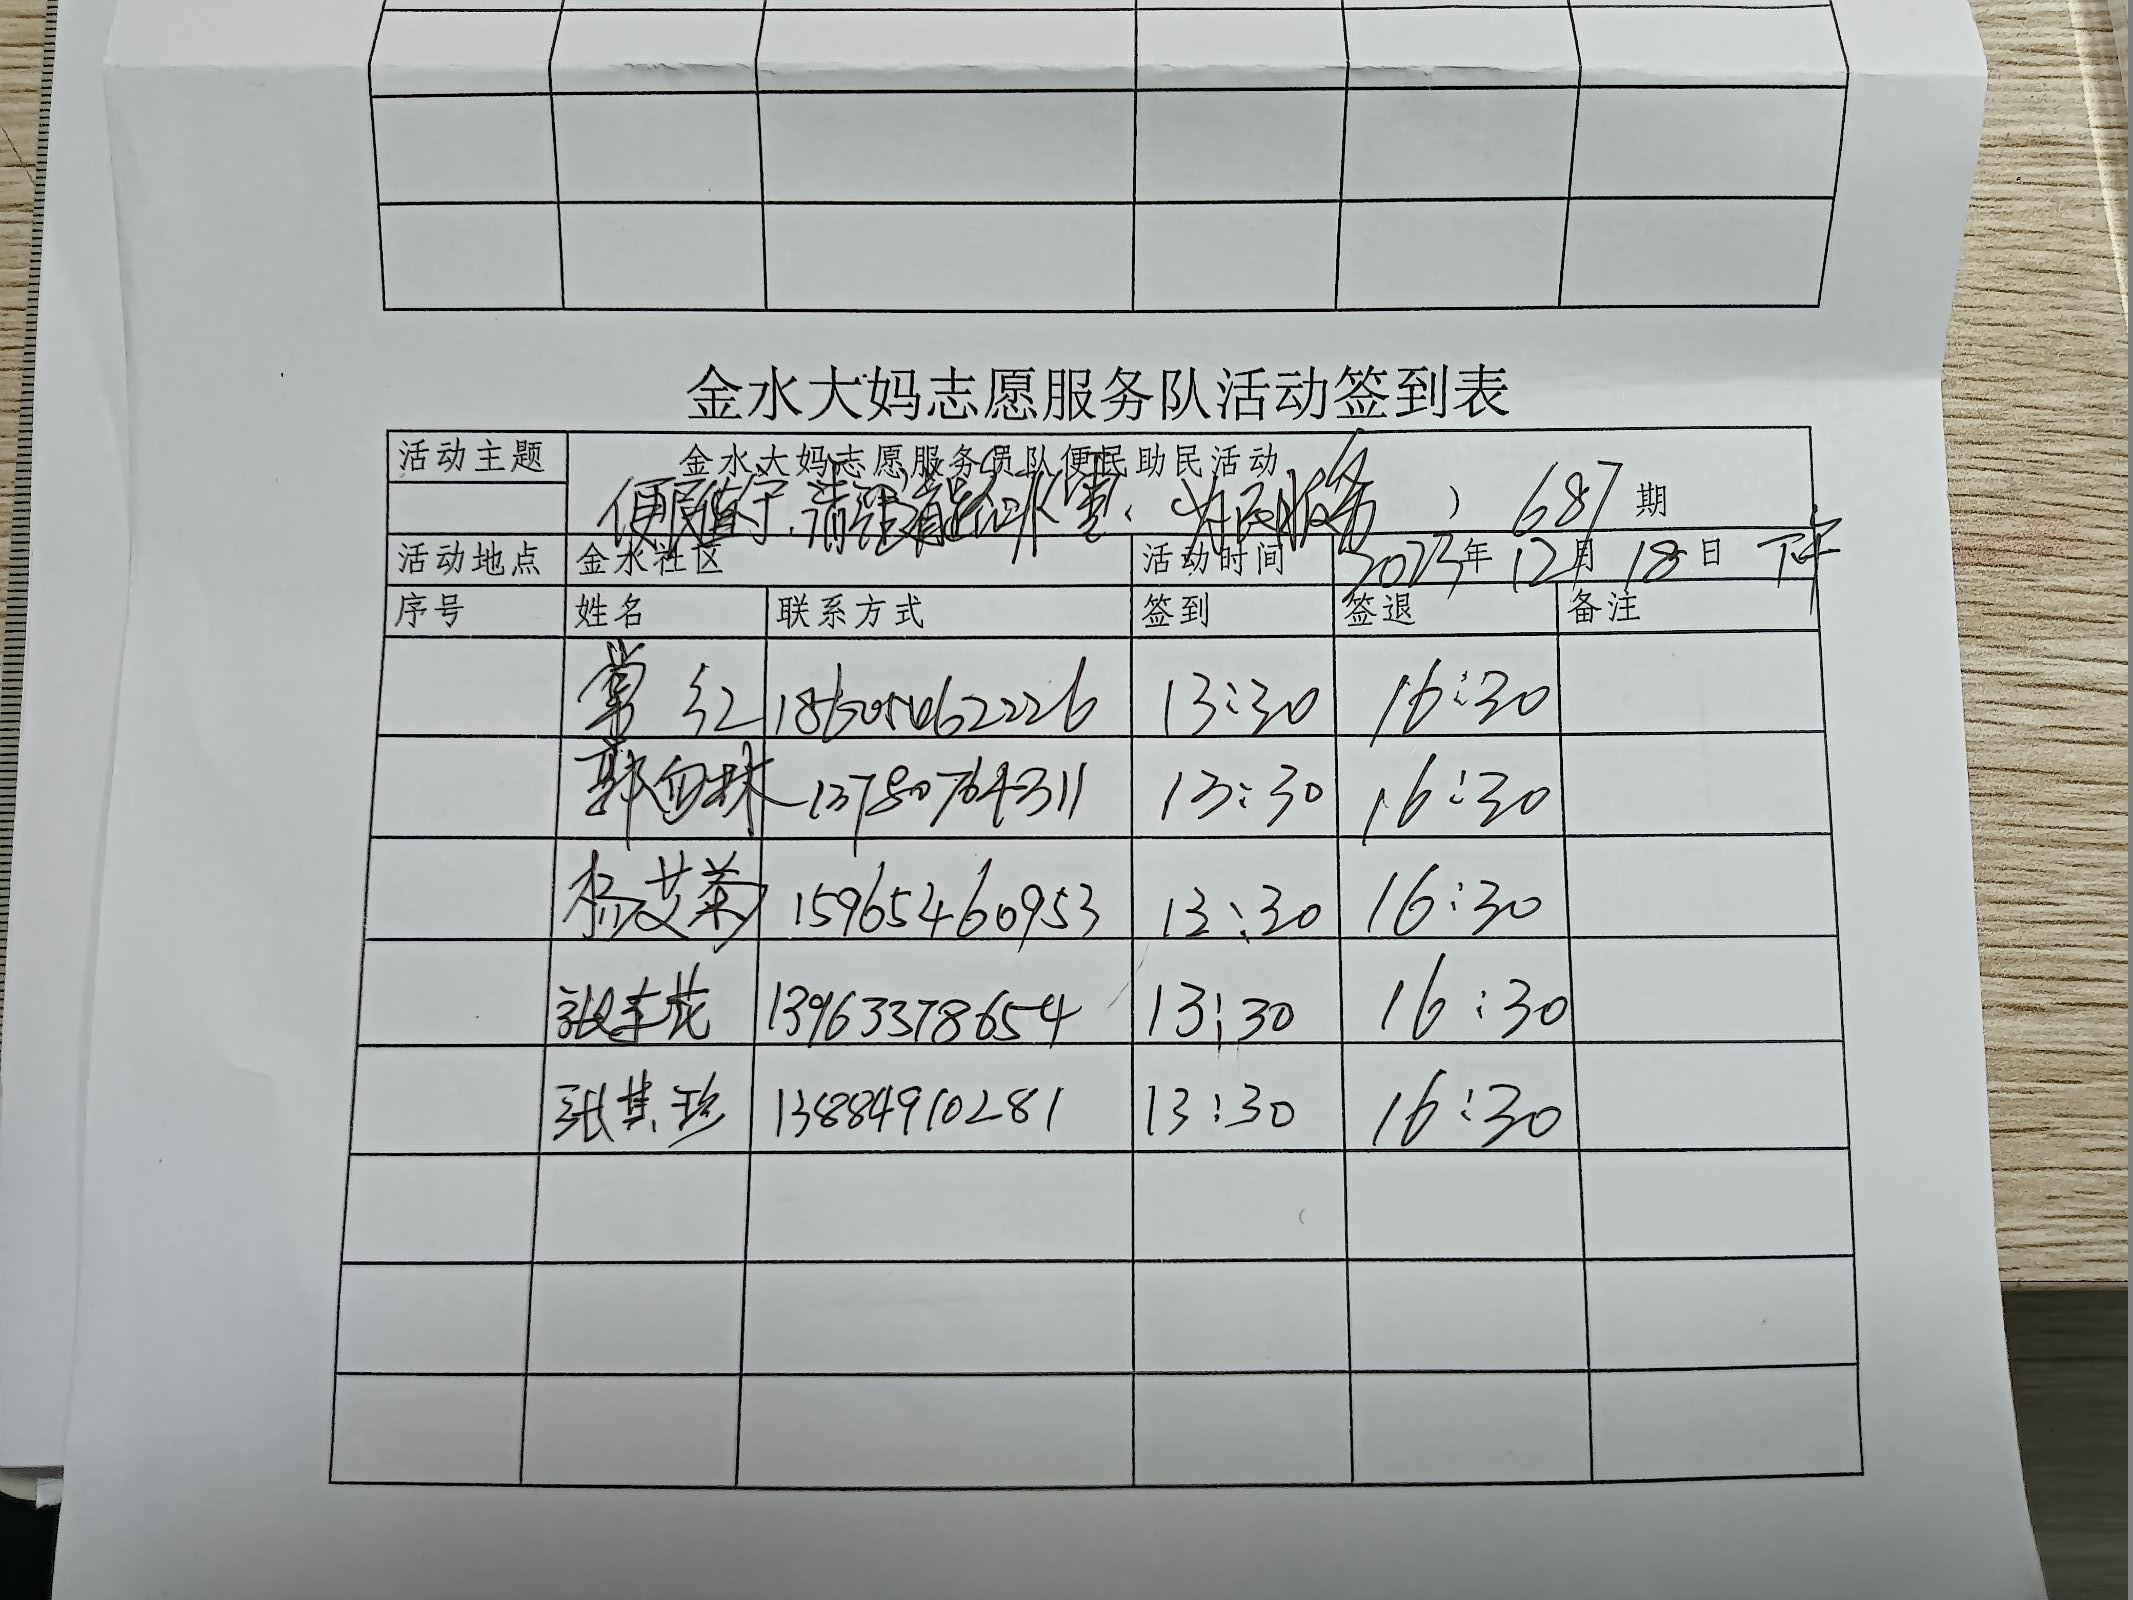 金水大妈志愿服务队活动签到表
活动主题 金水大妈志愿服务员队便民助民活动
便民 清 为民服务 ） 687 期
活动地点 金水社区 活动时间 2023年12月18日 下午
序号 姓名 联系方式 签到 签退 备注
常红 13:30 16:30
郭 13780764311 13:30 16:30
杨艾菊 15965460953 13:30 16:30
张 花 13963378654 13:30 16:30
张其珍 13884910281 13:30 16:30